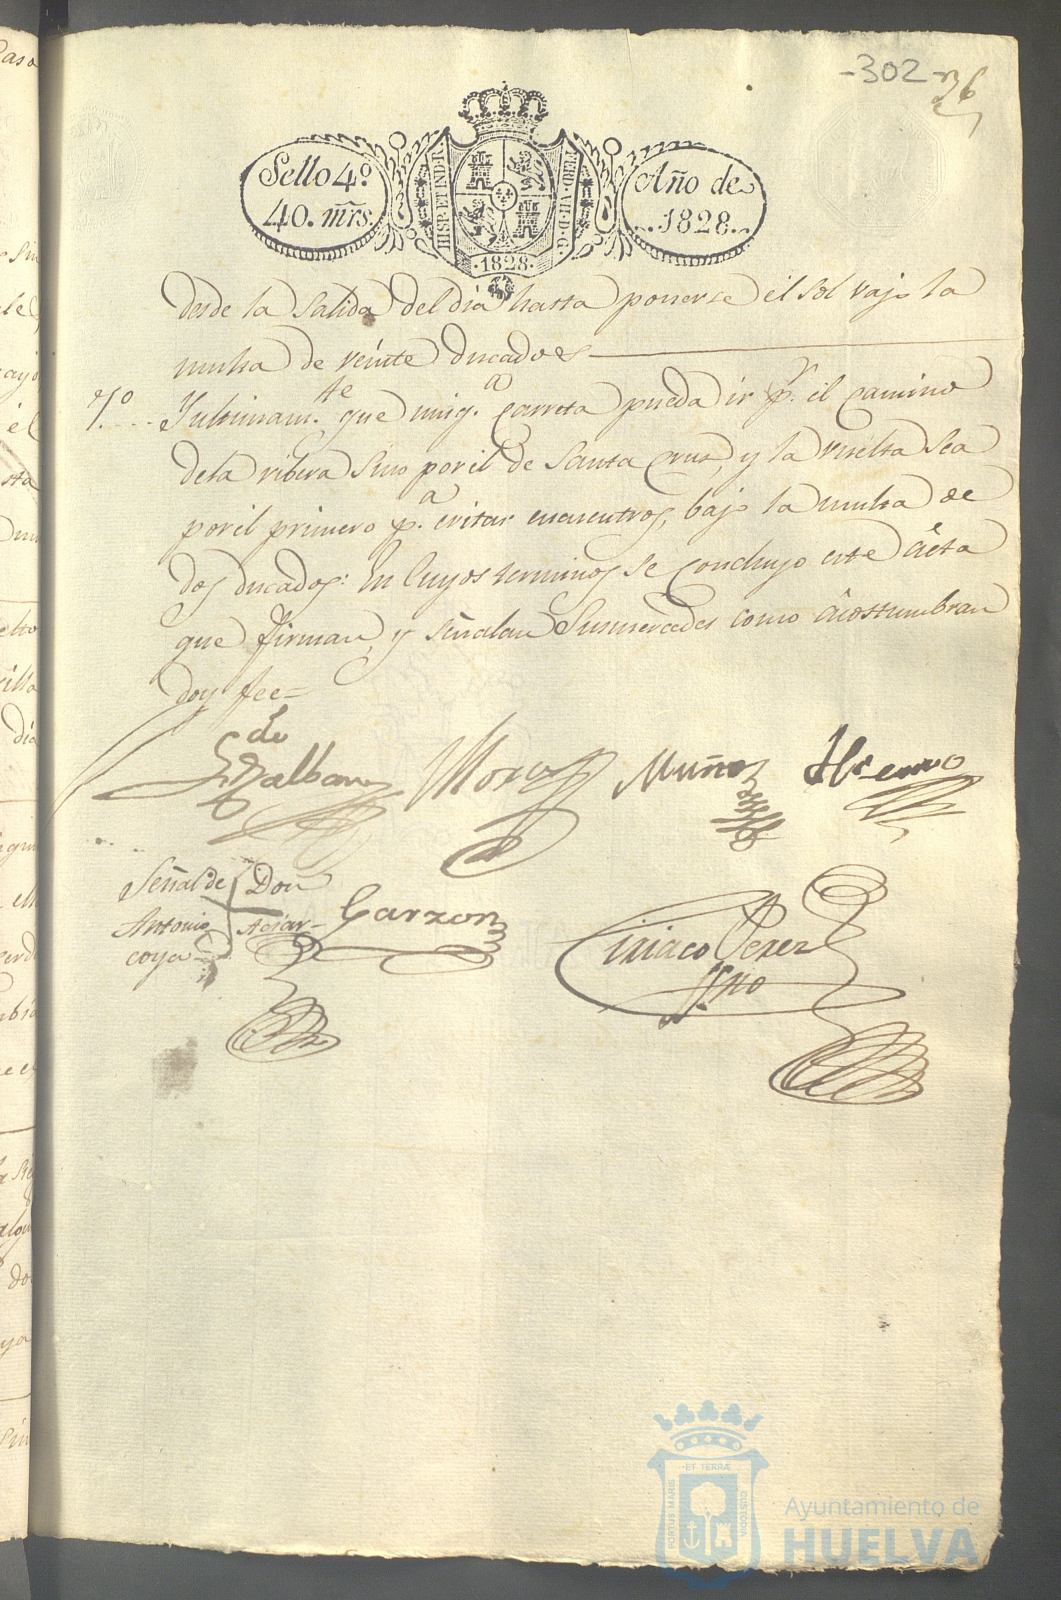 -302-
36
Sello 4º
40. mrs.
HISP. ET IND. R
FERD. VII. D. G.
1828.
Año de
1828.
desde la Salida del dia hasta ponerse el Sol vajo la
multa de veinte ducados
7º.... Y ultimamte. que ninga. Carreta pueda ir pr. el Camino
dela rivera Sino por el de Santa Cruz, y la vuelta Sea
por el primero pa. evitar encuentros, bajo la multa de
dos ducados: En Cuyos terminos se Concluyo este Acta
que firman, y Señalan Susmercedes como âcostumbran
doy fee=
Muñoz
Señal de Don
Antonio
coya
Garzon
Ciriaco Perez
Sno
PORTUS MARIS
ET TERRÆ
CUSTODIA
Ayuntamiento de
HUELVA